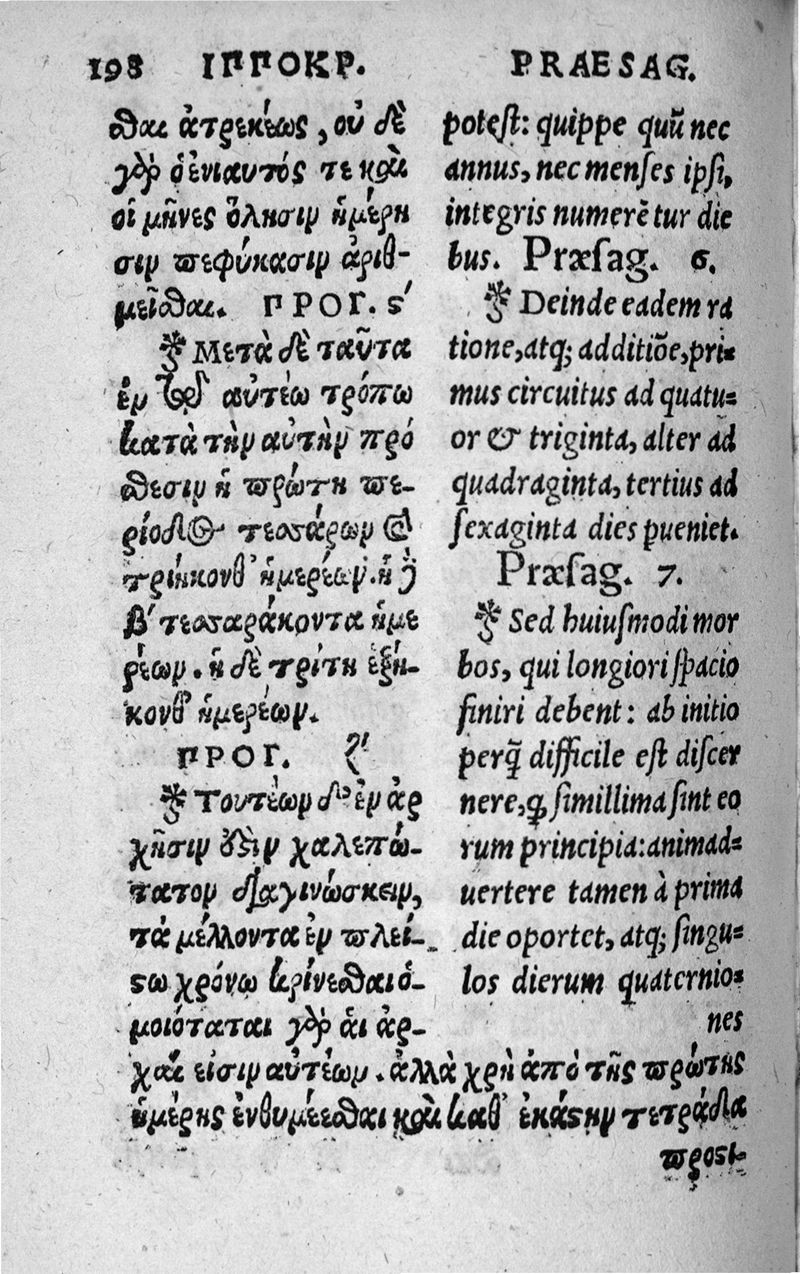 198 ΙΠΠΟΚΡ. PRAESAG.
σθαι ἀτρεκέως, οὐδὲ
γὰρ ὁ ἐνιαυτός τε καὶ
οἱ μῆνες ὅλησιν ἡμέρη
σιν πεφύκασιν ἀριθ-
μεῖσθαι. ΠΡΟΓ. ϛ′
Μετὰ δὲ ταῦτα
ἐν τῷ αὐτέῳ τρόπῳ
κατὰ τὴν αὐτὴν πρό
θεσιν ἡ πρώτη πε-
ρίοδος τεσσάρων καὶ
τριήκονθ' ἡμερέων. ἡ δὲ
β′ τεσσαράκοντα ἡμε
ρέων. ἡ δὲ τρίτη ἑξή-
κονθ' ἡμερέων.
ΠΡΟΓ. ζ′
Τουτέων δ' ἐν ἀρ
χῇσιν ἐστὶν χαλεπώ-
τατον διαγινώσκειν,
τὰ μέλλοντα ἐν πλεί-
στῳ χρόνῳ κρίνεσθαι ὁ-
μοιόταται γὰρ ἁι ἀρ-
χαί εἰσιν αὐτέων. ἀλλὰ χρὴ ἀπὸ τῆς πρώτης
ἡμέρης ἐνθυμέεσθαι καὶ καθ' ἑκάστην τετράδα
προστι-
potest: quippe quũ nec
annus, nec menſes ipſi,
integris numerẽtur die
bus. Præſag. 6.
Deinde eadem ra
tione, atq; additiõe, pri-
mus circuitus ad quatu-
or & triginta, alter ad
quadraginta, tertius ad
ſexaginta dies pueniet.
Præſag. 7.
Sed huiuſmodi mor
bos, qui longiori ſpacio
finiri debent: ab initio
perq̃ difficile eſt diſcer
nere, ꝙ ſimillima ſint eo
rum principia: animad-
uertere tamen à prima
die oportet, atq; ſingu-
los dierum quaternio-
nes